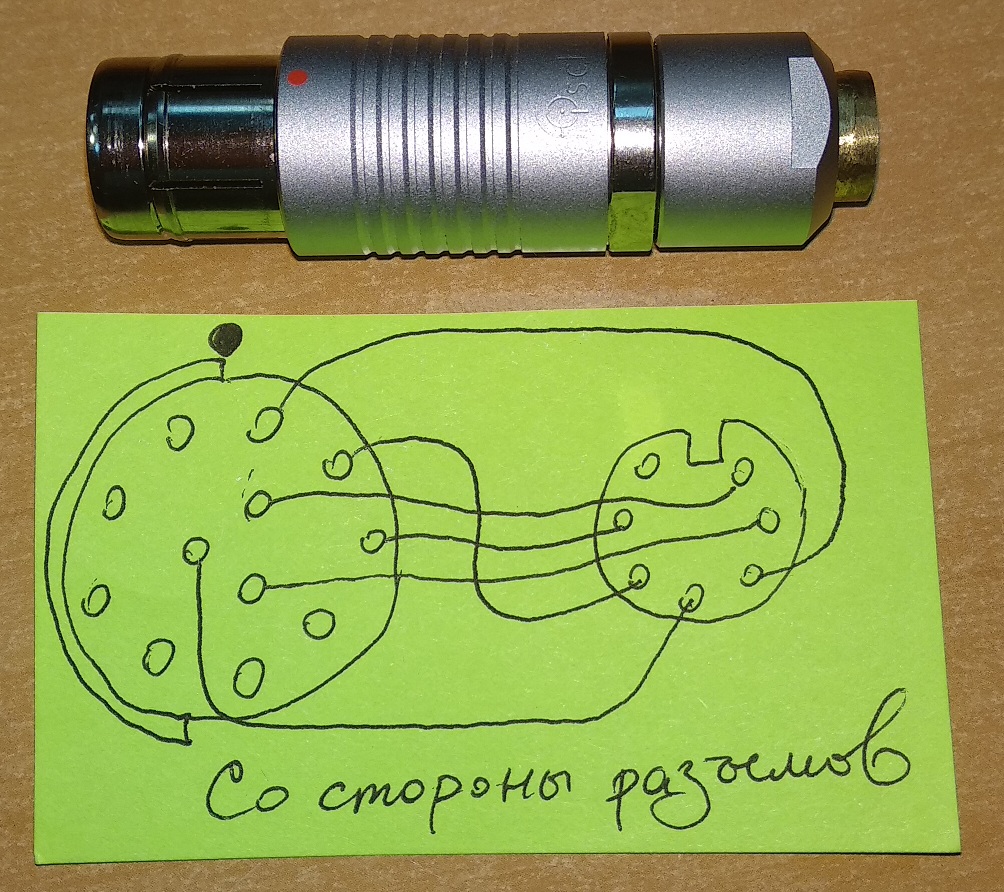 Psd
Со стороны разъемов